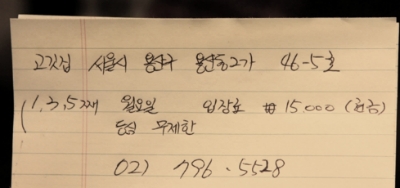 고깃집 서울시 용산구 용산동2가 46-5호
(1,3,5째 월요일 입장료 ₩15,000 (현금)
음식 무제한
02) 796·5528